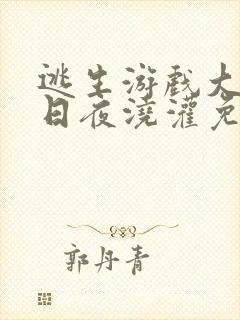 逃生游戏大
日夜浇灌免
郭丹青